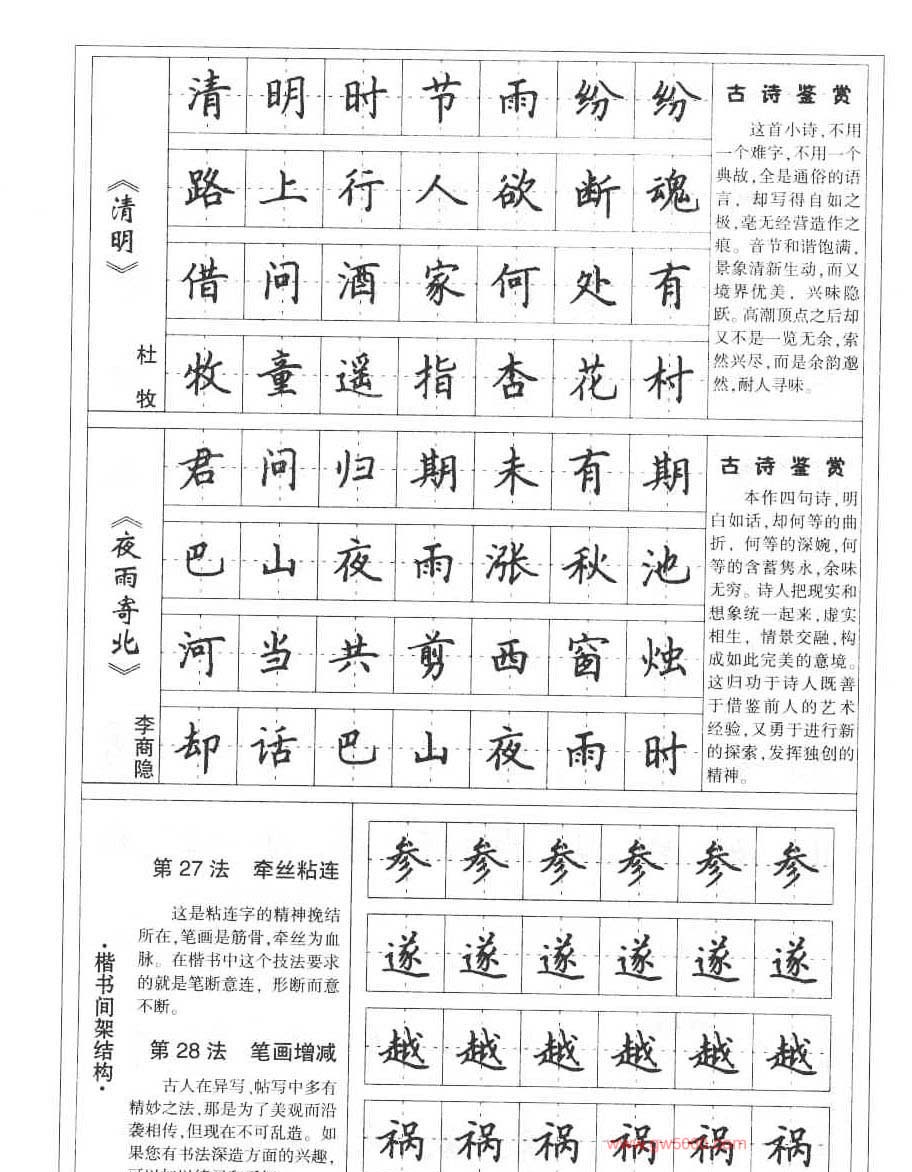 《清明》
杜牧
清明时节雨纷纷
路上行人欲断魂
借问酒家何处有
牧童遥指杏花村
古诗鉴赏
这首小诗,不用
一个难字,不用一个
典故,全是通俗的语
言，却写得自如之
极,毫无经营造作之
痕。音节和谐饱满,
景象清新生动,而又
境界优美，兴味隐
跃。高潮顶点之后却
又不是一览无余,索
然兴尽,而是余韵邈
然,耐人寻味。
《夜雨寄北》
李商隐
君问归期未有期
巴山夜雨涨秋池
河当共剪西窗烛
却话巴山夜雨时
古诗鉴赏
本作四句诗,明
白如话,却何等的曲
折，何等的深婉,何
等的含蓄隽永,余味
无穷。诗人把现实和
想象统一起来,虚实
相生，情景交融,构
成如此完美的意境。
这归功于诗人既善
于借鉴前人的艺术
经验,又勇于进行新
的探索,发挥独创的
精神。
·楷书间架结构·
第27法 牵丝粘连
这是粘连字的精神挽结
所在,笔画是筋骨,牵丝为血
脉。在楷书中这个技法要求
的就是笔断意连，形断而意
不断。
第28法 笔画增减
古人在异写、帖写中多有
精妙之法,那是为了美观而沿
袭相传,但现在不可乱造。如
果您有书法深造方面的兴趣,
参参参参参参
遂遂遂遂遂遂
越越越越越越
祸祸祸祸祸祸